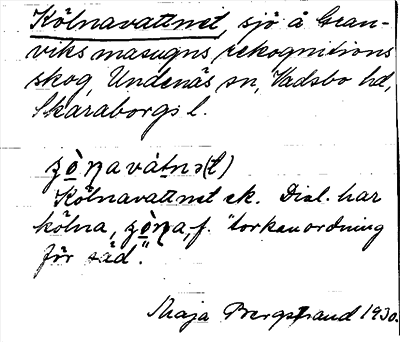 Kölnavattnet, sjö å Gran-
viks masugns rekognitions
skog, Undenäs sn, Vadsbo hd,
Skaraborgs l.
Kölnavattnet ek. Dial. har
kölna, f. "torkanordning
för säd".
Maja Bergstrand 1930.